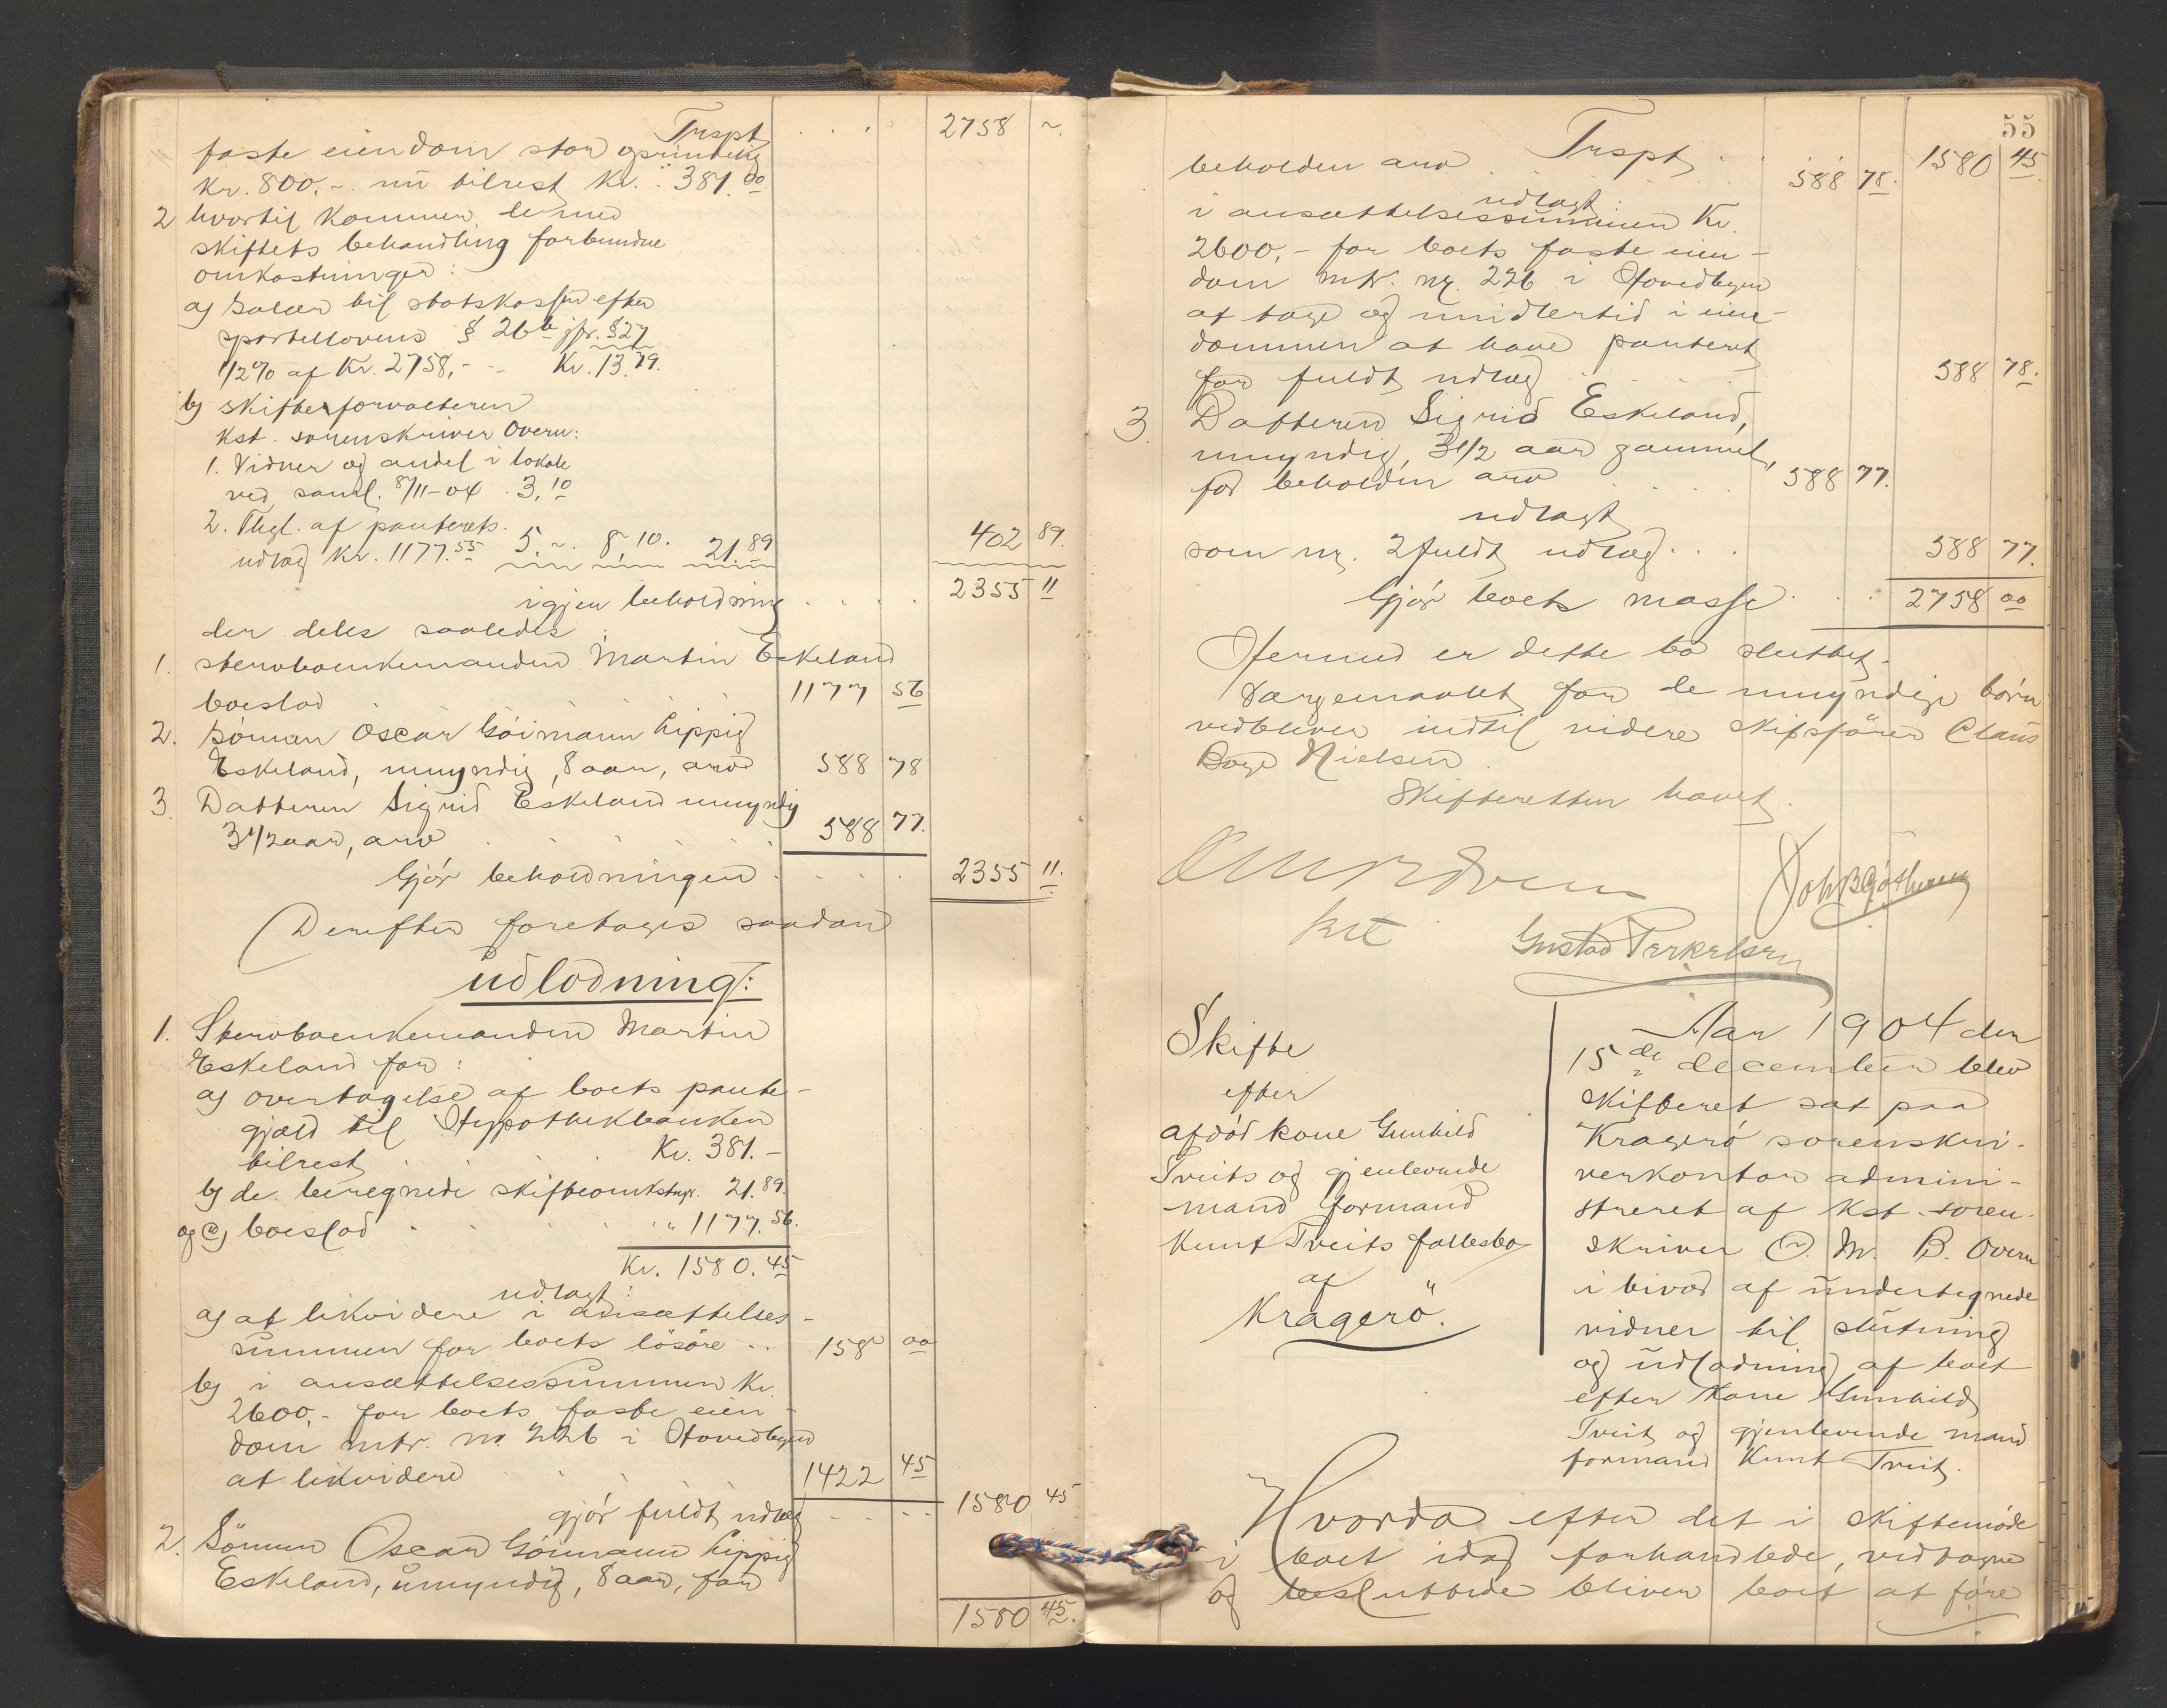 Trspt . . . 2758 ~.
faste eiendom stor oprindelig
Kr. 800.- nu tilrest Kr. 381.00
2 hvortil kommer de med
skiftets behandling forbundne
omkostninger:
a) Salær til statskassen efter
sportellovens § 26 b jfr. § 27
1/2 % af Kr. 2758,- - Kr. 13.79.
b) skifteforvalteren
Kst. sorenskriver Overn:
1. Vidner og andel i lokale
ved saml. 8/11-04 . 3,10
2. Thgl. af panterets.
udlæg Kr. 1177.55 5.~. 8,10. 21.89 402 89.
igjen beholdning . . . . 2355 11
der deles saaledes:
1. stervboenkemanden Martin Eskeland
boeslod 1177 56
2. Sönnen Oscar Göimann Lippig
Eskeland, umyndig, 8 aar, arv 588 78
3. Datteren Sigrid Eskeland umyndig
3 1/2 aar, arv . . . . 588 77.
Gjör beholdningen . . . . 2355 11.
Derefter foretoges saadan
udlodning:
1. Stervboenkemanden Martin
Eskeland for:
a) overtagelse af boets pante-
gjæld til Hypothekbanken
tilrest . . . Kr. 381.-
b) de beregnede skifteomkstngr. 21.89.
og c) boeslod . . . . " 1177.56.
Kr. 1580.45
udlagt:
a) at likvidere i ansættelses-
summen for boets lösöre .. 158 00
b) i ansættelsessummen Kr.
2600,- for boets faste eien-
dom mtr. no. 226 i Hovedbyen
at likvidere . . . 1422 45
gjör fuldt udlæg - . . . 1580 45
2. Sönnen Oscar Göimann Lippig
Eskeland, umyndig, 8 aar, for
1580 45.
55
Trspt . . . 1580 45.
beholden arv . . . . 588 78.
udlagt:
i ansættelsessummen Kr.
2600,- for boets faste eien-
dom mtr. nr. 226 i Hovedbyen
at tage og imidlertid i eien-
dommen at have panteret
for fuldt udlæg . . . . 588 78.
3. Datteren Sigrid Eskeland,
umyndig, 3 1/2 aar gammel,
for beholden arv . . . 588 77.
udlagt
som nr. 2 fuldt udlæg . . . 588 77.
Gjör boets masse . . . 2758 00
Hermed er dette bo sluttet.
Værgemaalet for de umyndige börn
vedbliver indtil videre skibsförer Claus
Boye Nielsen.
Skifteretten hævet.
O M B Overn
kst
Gustav Terkelsen
Skifte
efter
afdöd kone Gunhild
Tveits og gjenlevende
mand formand
Knut Tveits fællesbo
af
Kragerö.
Aar 1904 den
15de december blev
skifteret sat paa
Kragerö sorenskri-
verkontor admini-
streret af kst. soren-
skriver O. M. B. Overn
i bivær af undertegnede
vidner til slutning
og udlodning af boet
efter kone Gunhild
Tveit og gjenlevende mand
formand Knut Tveit.
Hvorda efter det i skiftemöde
i boet idag forhandlede, vedtagne
og besluttede bliver boet at före